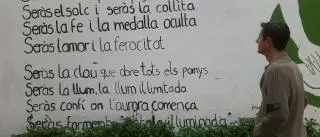 Seràs el sol c i seràs la collita
Seràs la fe i la medalla oculta
Seràs l amor i la ferocitat
Seràs la clau que obre tots els panys
Seràs la llum, la llum il·limitada
Seràs confí on l'aurora comença
Seràs forment, escala il·luminada